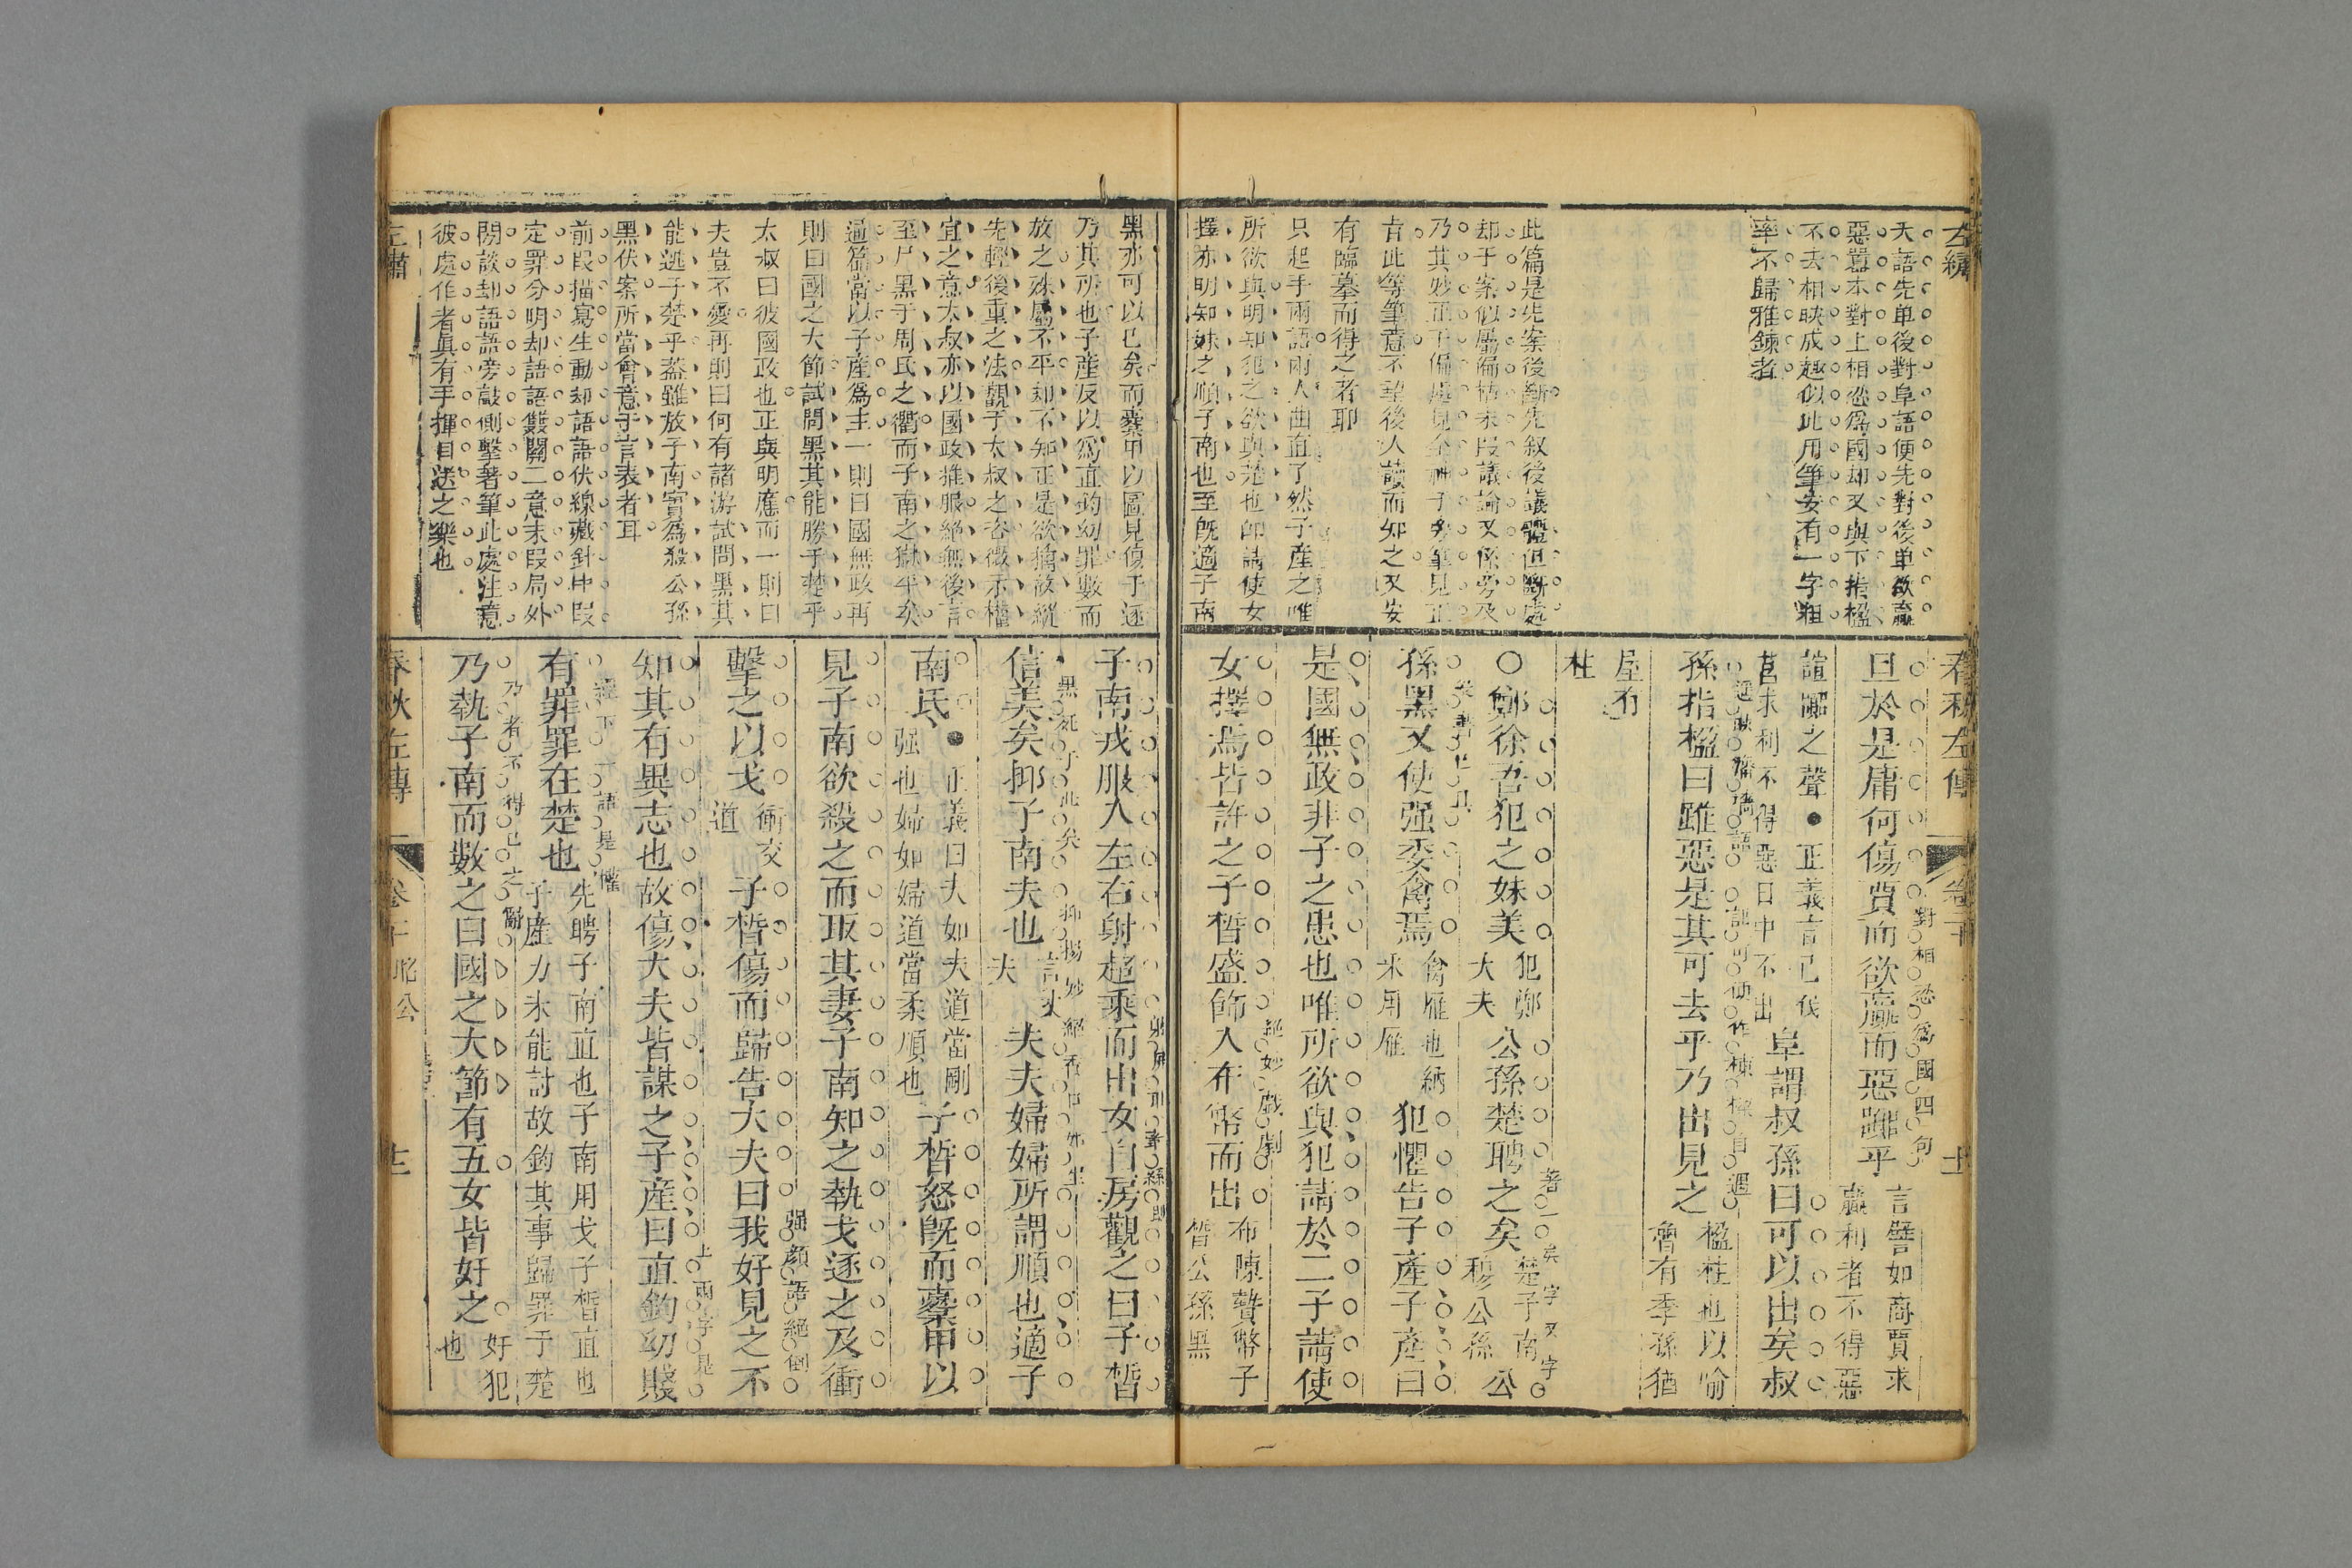 春秋左傳
卷二十
夭語先单後對阜語便先對後单欲贏
惡囂本對上相忿爲國却又與下指楹
不去相映成趣似此用筆安有一字粗
率不歸雅鍊者
此篇是先案後斷先叙後議體但斷處
却于案似屬偏枯末段議論又係旁及
乃其妙正于偏處見全神于旁筆見正
旨此等筆意不望後人讀而知之又安
有臨摹而得之者耶
只起手兩語兩人曲直了然子產之唯
所欲與明知犯之欲與楚也即請使女
擇亦明知妹之順子南也至旣適子南
旦於是庸何傷賈而欲贏而惡囂乎
言譬如商賈求
贏利者不得惡
諠囂之聲●正義言已伐
莒求利不得惡日中不出
阜謂叔孫曰可以出矣叔
孫指楹曰雖惡是其可去乎乃出見之
楹柱也以喻
魯有季孫猶
屋有
柱
對相忿爲國四句
○鄭徐吾犯之妹美
犯鄭
大夫
公孫楚聘之矣
楚子南
穆公孫
公
著一矣字又字
孫黑又使强委禽焉
禽雁也納
采用雁
犯懼告子產子產曰
是國無政非子之患也唯所欲與犯請於二子請使
女擇焉皆許之子晳盛飾入布幣而出
布陳贄幣子
晳公孫黑
絕妙戲劇
黑亦可以已矣而櫜甲以圖見傷于逐
乃其所也子產反以爲直鈞幼罪數而
放之殊屬不平却不知正是欲擒故縱
先輕後重之法觀于太叔之咨微示權
宜之意太叔亦以國政推服絕無後言
至尸黑于周氏之衢而子南之獄平矣
通篇當以子產爲主一則曰國無政再
則曰國之大節試問黑其能勝乎楚乎
太叔曰彼國政也正與明應而一則曰
夫豈不愛再則曰何有諸游試問黑其
能逃乎楚乎蓋雖放子南實爲殺公孫
黑伏案所當會意于言表者耳
前段描寫生動却語語伏線藏針中段
定罪分明却語語雙關二意末段局外
閒談却語語旁敲側擊著筆此處注意
彼處作者眞有手揮目送之樂也
子南戎服入左右射超乘而出女自房觀之曰子晳
信美矣抑子南夫也
言丈
夫
夫夫婦婦所謂順也適子
黑死于此矣
抑揚妙
南氏
●正義曰夫如夫道當剛
强也婦如婦道當柔順也
子晳怒旣而櫜甲以
見子南欲殺之而取其妻子南知之執戈逐之及衝
擊之以戈
衝交
道
子晳傷而歸告大夫曰我好見之不
强顏語絕倒
知其有異志也故傷大夫皆謀之子產曰直鈞幼賤
上兩字是
有罪罪在楚也
先聘子南直也子南用戈子晳直也
子產力未能討故鈞其事歸罪于楚
乃執子南而數之曰國之大節有五女皆奸之
奸犯
也
乃者不得已之辭
春秋左傳
昭公